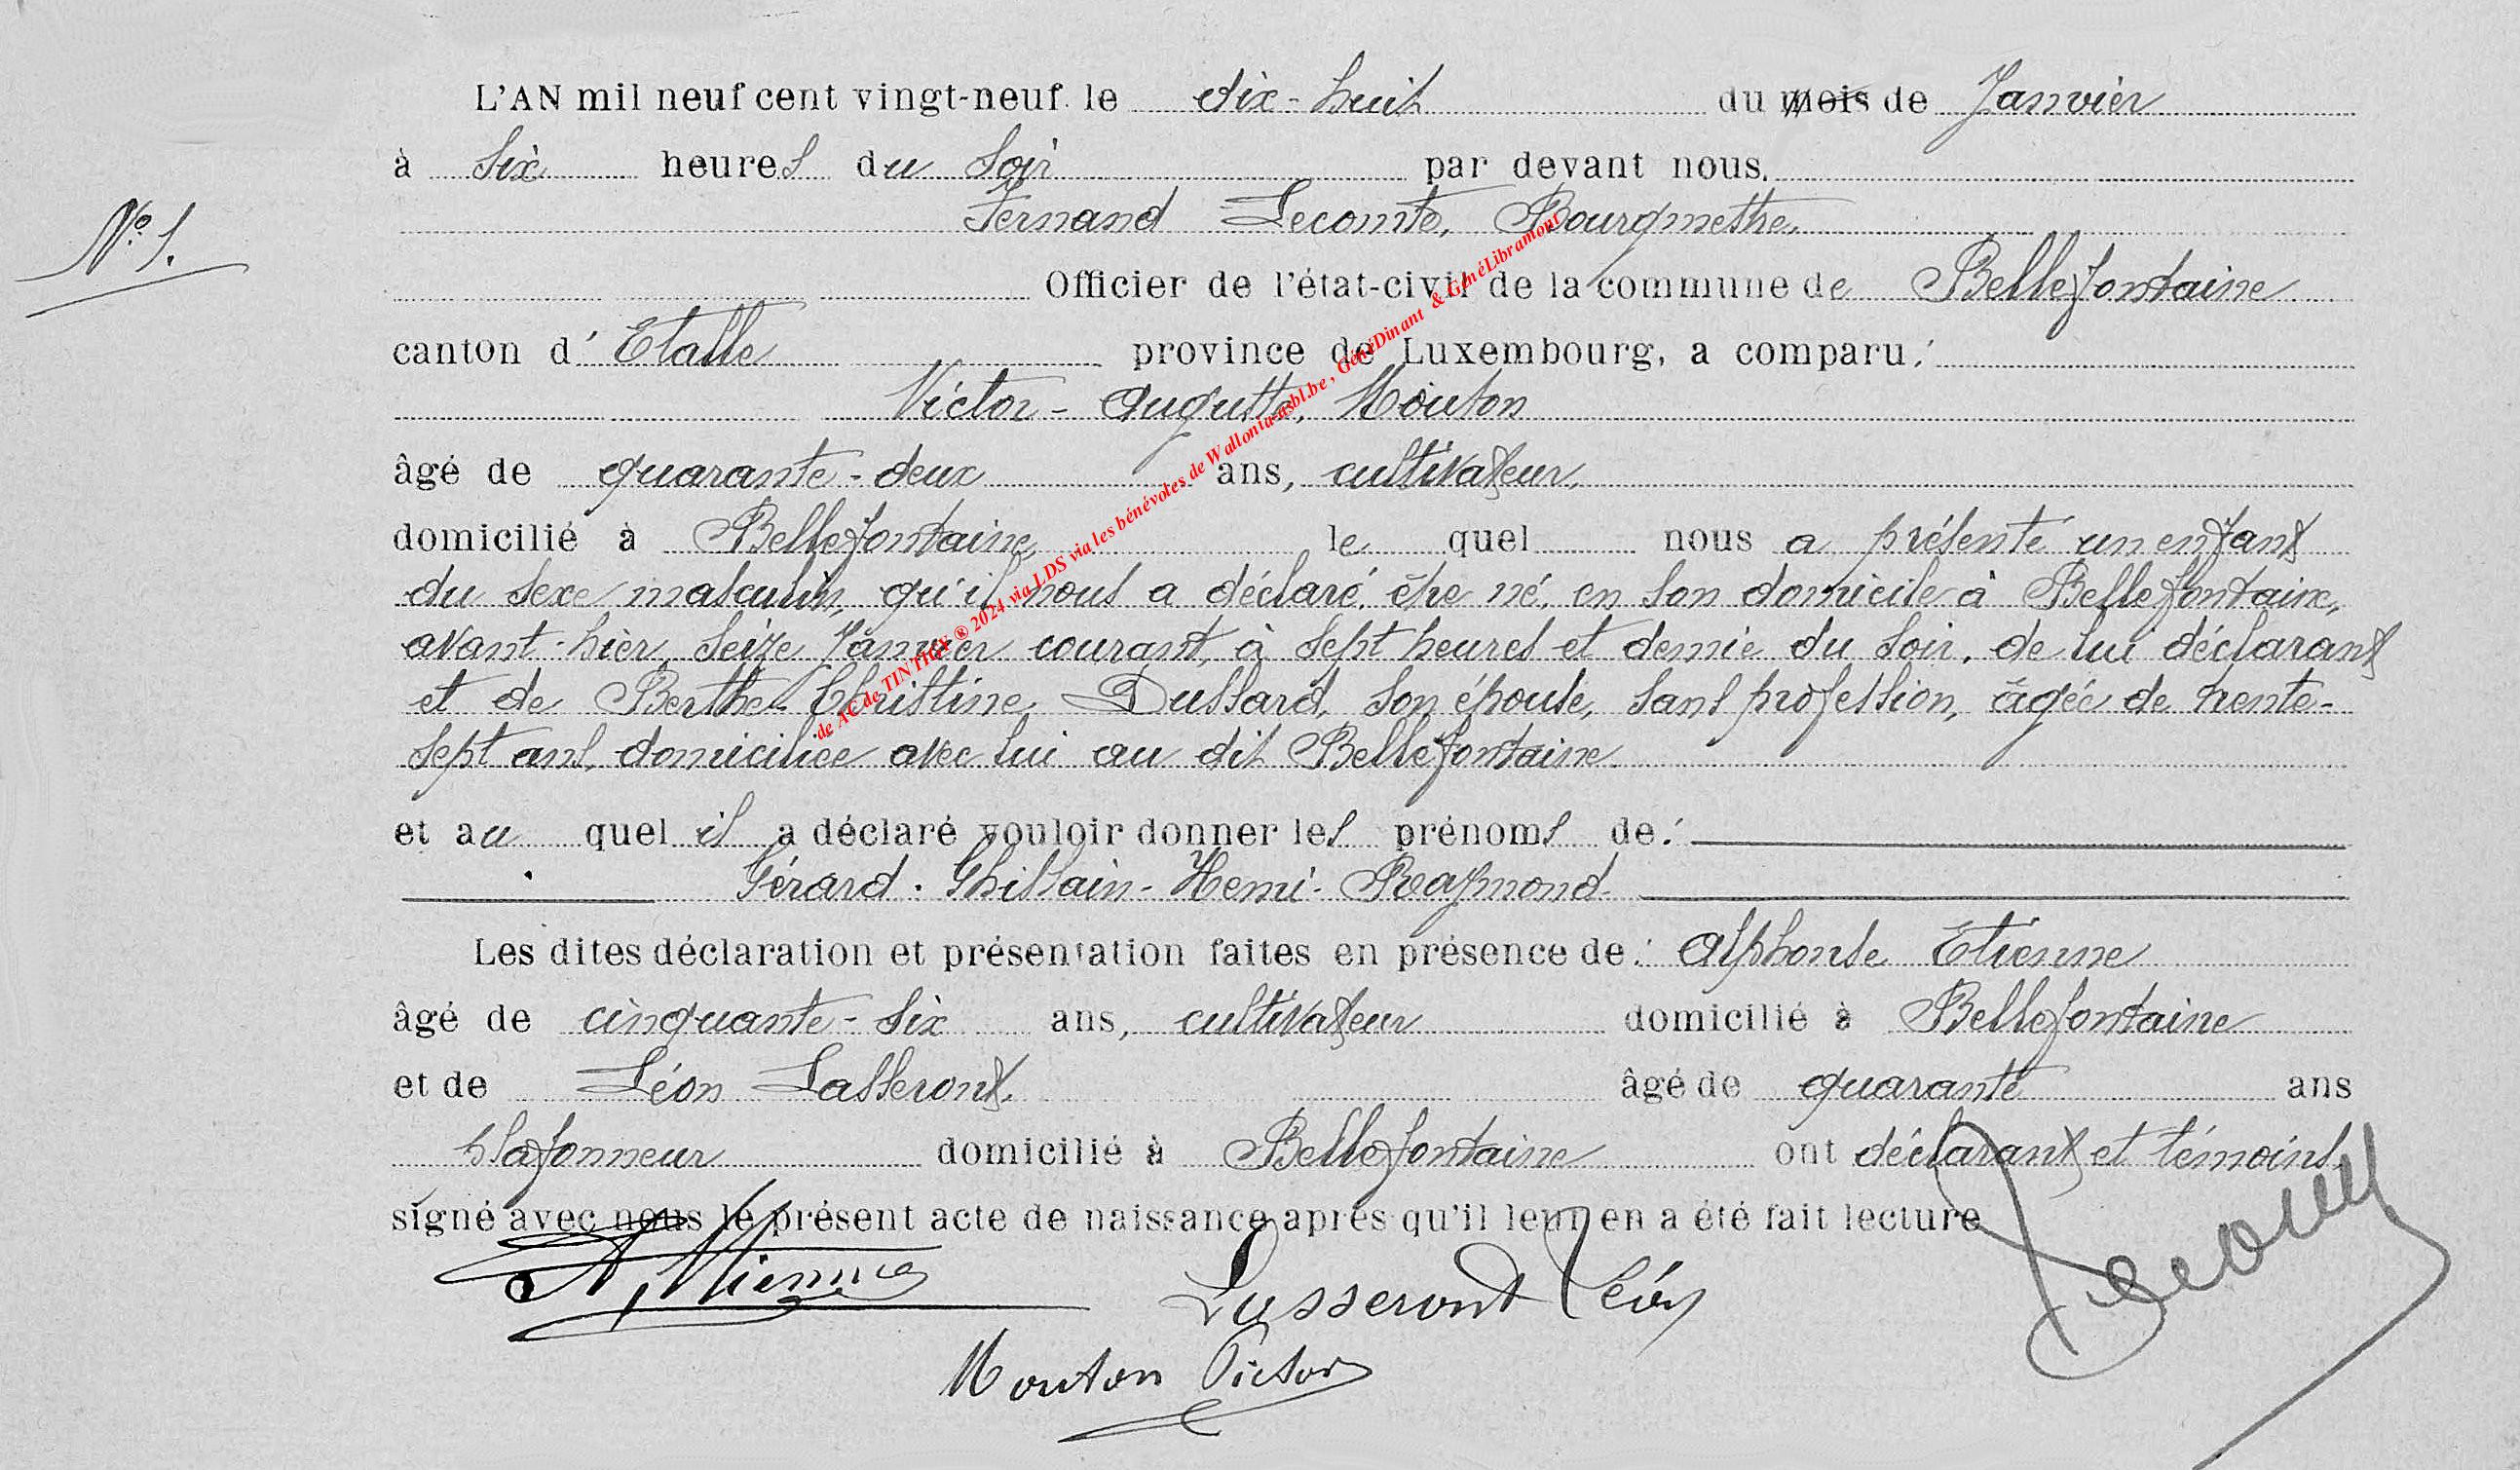 L'AN mil neuf cent vingt-neuf le dix-huit du mois de Janvier
à six heures du soir par devant nous.
Fernand Lecomte, Bourgmestre,
N° 1.
Officier de l'état-civil de la commune de Bellefontaine
canton d'Etalle province de Luxembourg, a comparu:
Victor-Auguste, Mouton
âgé de quarante-deux ans, cultivateur,
domicilié à Bellefontaine, le quel nous a présenté un enfant
du sexe masculin, qu'il nous a déclaré être né, en son domicile à Bellefontaine,
avant-hier, seize Janvier courant, à sept heures et demie du soir, de lui déclarant
et de Berthe-Christine, Dussard, son épouse, sans profession, âgée de trente-
sept ans, domiciliée avec lui au dit Bellefontaine
et au quel il a déclaré vouloir donner les prénoms de:
Gérard-Ghislain-Henri-Raymond
Les dites déclaration et présentation faites en présence de: Alphonse Etienne
âgé de cinquante-six ans, cultivateur domicilié à Bellefontaine
et de Léon Lasseront, âgé de quarante ans
plafonneur domicilié à Bellefontaine ont déclarant et témoins,
signé avec nous le présent acte de naissance après qu'il leur en a été fait lecture
A. Etienne Lasseront Léon
Mouton Victor
de AC de TINTIGY ® 2024 via LDS via les bénévoles de Wallonia-asbl.be, GénéDinant & GénéLibramont